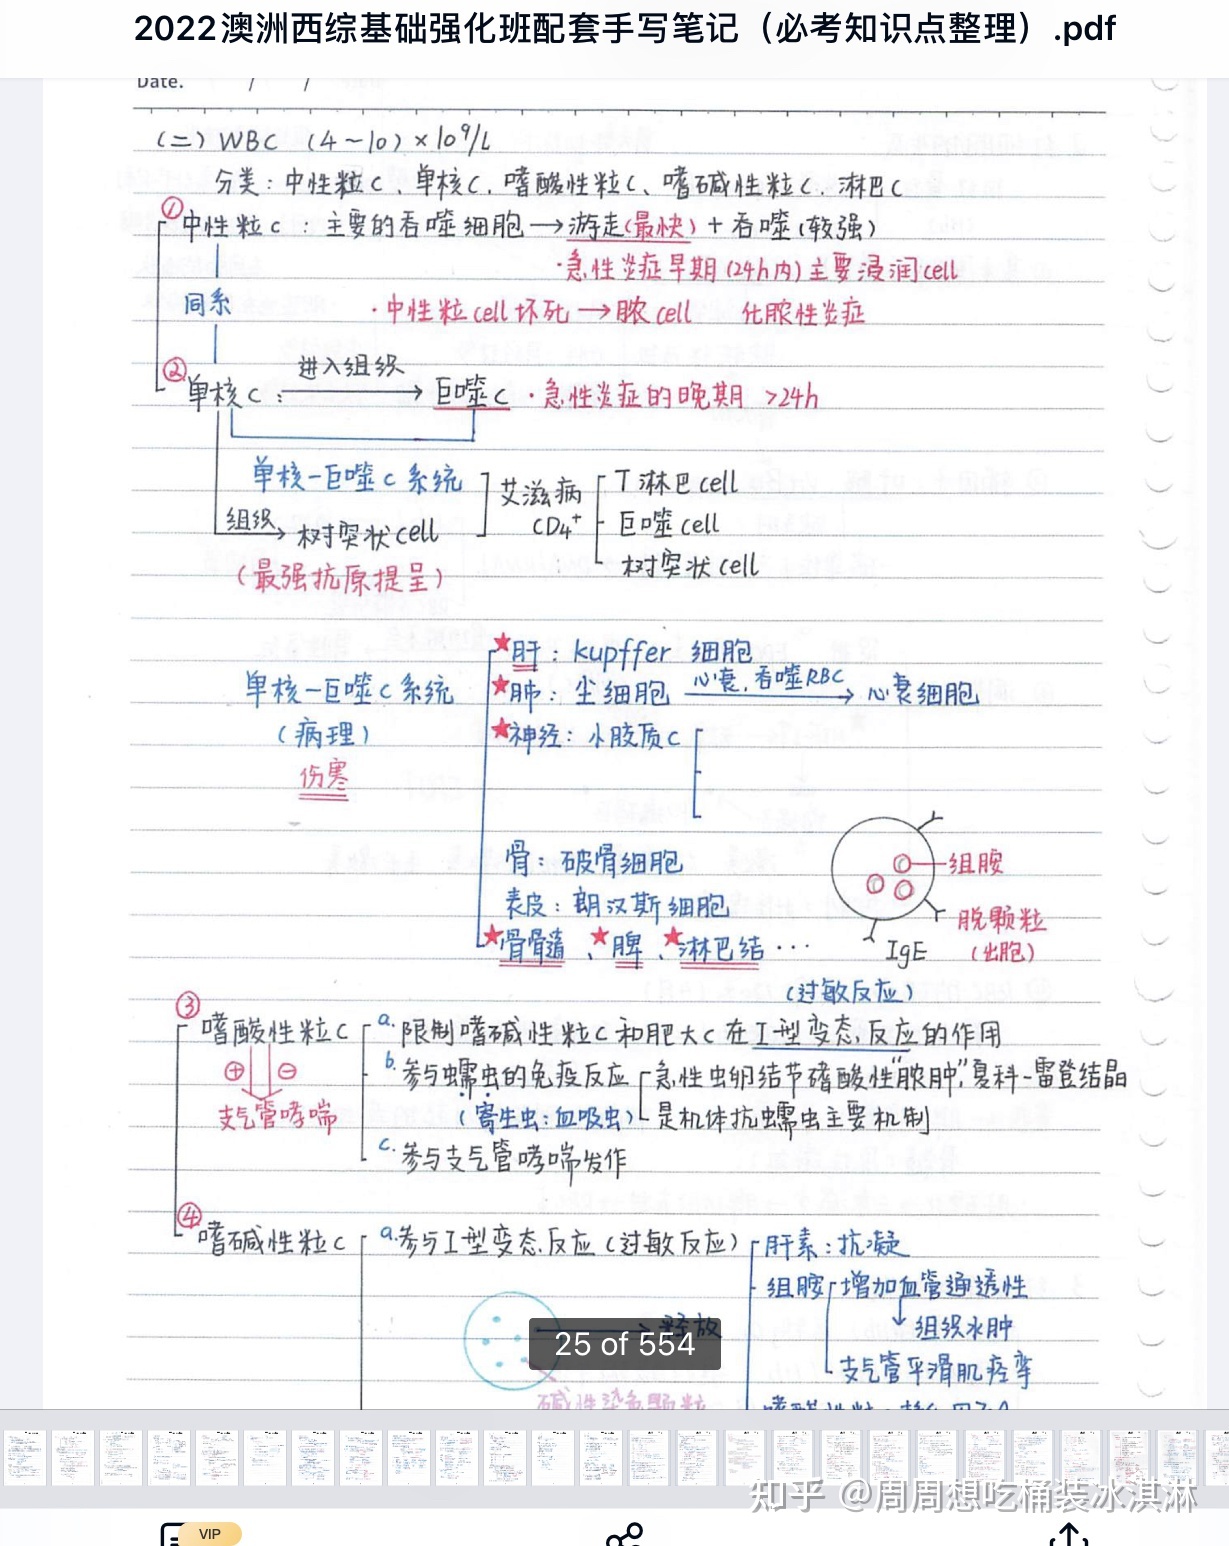 2022澳洲西综基础强化班配套手写笔记（必考知识点整理）.pdf
Date. / /
(二) WBC (4~10)×10⁹/L
分类：中性粒C、单核C、嗜酸性粒C、嗜碱性粒C、淋巴C
① 中性粒C：主要的吞噬细胞→游走(最快)+吞噬(较强)
·急性炎症早期(24h内)主要浸润cell
同系
·中性粒cell坏死→脓cell 化脓性炎症
② 单核C： 进入组织→ 巨噬C ·急性炎症的晚期 >24h
单核-巨噬C系统
艾滋病 CD4⁺
T淋巴cell
巨噬cell
树突状cell
组织→ 树突状cell
(最强抗原提呈)
单核-巨噬C系统
(病理)
伤寒
★肝：kupffer 细胞
★肺：尘细胞 心衰,吞噬RBC→ 心衰细胞
★神经：小胶质C
骨：破骨细胞
表皮：朗汉斯细胞
★骨髓、★脾、★淋巴结···
组胺
脱颗粒
(出胞)
IgE
(过敏反应)
③ 嗜酸性粒C
a. 限制嗜碱性粒C和肥大C在I型变态反应的作用
⊕ ⊖
b. 参与蠕虫的免疫反应 急性虫卵结节嗜酸性"脓肿",夏科-雷登结晶
支气管哮喘
(寄生虫:血吸虫) 是机体抗蠕虫主要机制
c. 参与支气管哮喘发作
④ 嗜碱性粒C
a. 参与I型变态反应(过敏反应)
肝素：抗凝
组胺 增加血管通透性
释放
↓组织水肿
支气管平滑肌痉挛
25 of 554
碱性染色颗粒
知乎 @周周想吃桶装冰淇淋
VIP